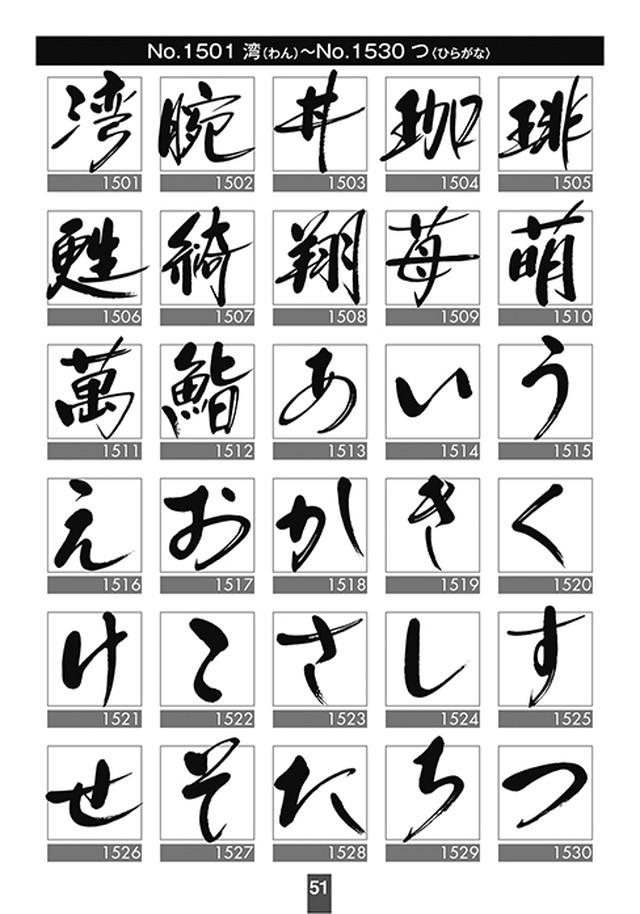 No.1501 湾(わん)～No.1530 つ〈ひらがな〉
湾 腕 丼 珈 琲
1501 1502 1503 1504 1505
甦 綺 翔 苺 萌
1506 1507 1508 1509 1510
萬 鮨 あ い う
1511 1512 1513 1514 1515
え お か き く
1516 1517 1518 1519 1520
け こ さ し す
1521 1522 1523 1524 1525
せ そ た ち つ
1526 1527 1528 1529 1530
51